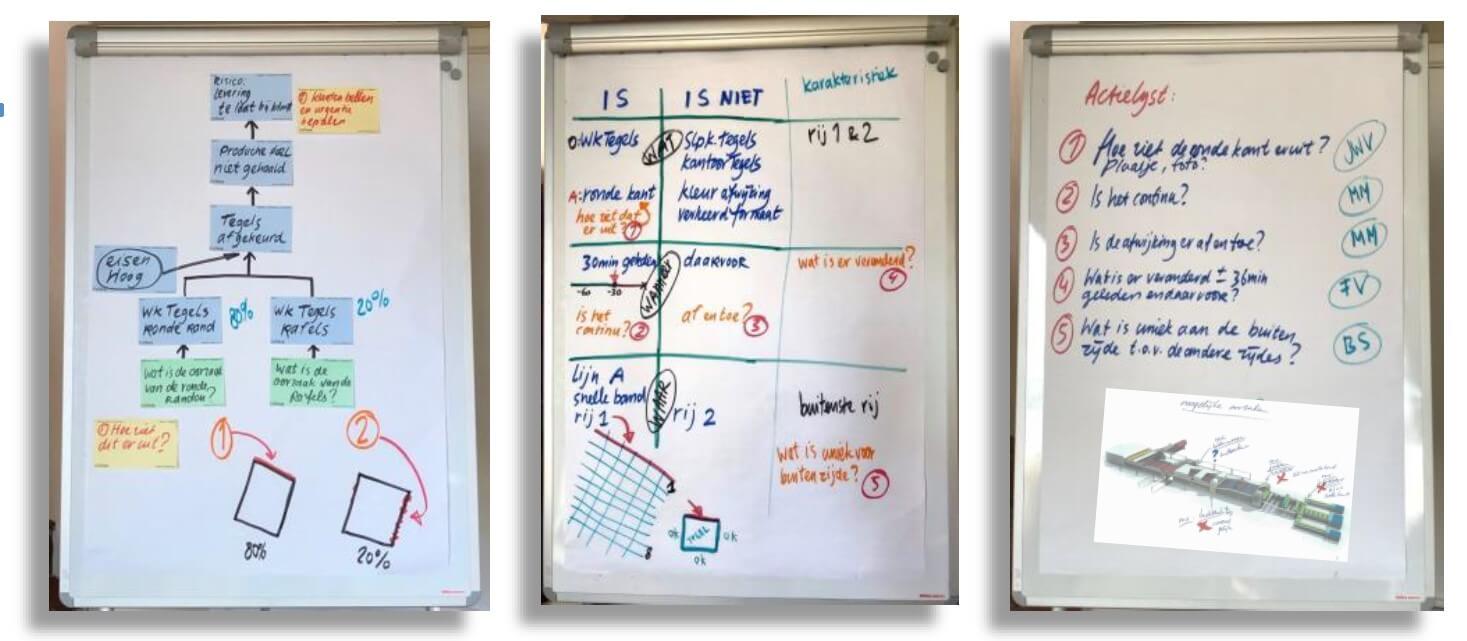 Risico:
levering
te laat bij klant
① klanten bellen
en urgentie
bepalen
Productie doel
niet gehaald
Tegels
afgekeurd
eisen
Hoog
WK Tegels
Ronde Rand
80%
WK Tegels
Rafels
20%
Wat is de oorzaak
van de ronde
randen?
Wat is de
oorzaak van de
Rafels?
① Hoe ziet
dit er uit?
1
2
80%
20%
IS
IS NIET
karakteristiek
O: WK Tegels
WAT
Slpk. tegels
kantoor Tegels
rij 1 & 2
A: ronde kant
hoe ziet dat
er uit? ①
kleur afwijking
verkeerd formaat
30min geleden
WANNEER
daarvoor
wat is er veranderd?
④
-60
-30
is het
continu? ②
af en toe? ③
Lijn A
snelle band
rij 1
WAAR
rij 2
buitenste rij
wat is uniek voor
buiten zijde? ⑤
1
8
TEGEL
ok
ok
ok
Actielijst:
① Hoe ziet de ronde kant eruit?
plaatje, foto?
JWV
② Is het continu?
MM
③ Is de afwijking er af en toe?
MM
④ Wat is er veranderd ± 36min
geleden en daarvoor?
FV
⑤ Wat is uniek aan de buiten
zijde t.o.v. de andere zijdes?
BS
mogelijke oorzaken
?